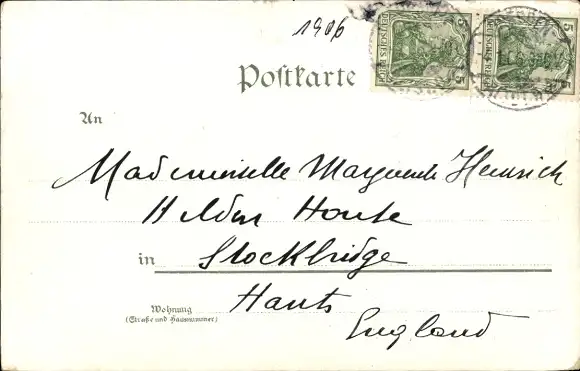 1906
5 DEUTSCHES REICH 5
5 DEUTSCHES REICH 5
Postkarte
An
Mademoiselle Marguerite Heinrich
Helden House
in Stockbridge
Hants
Wohnung
(Straße und Hausnummer)
England